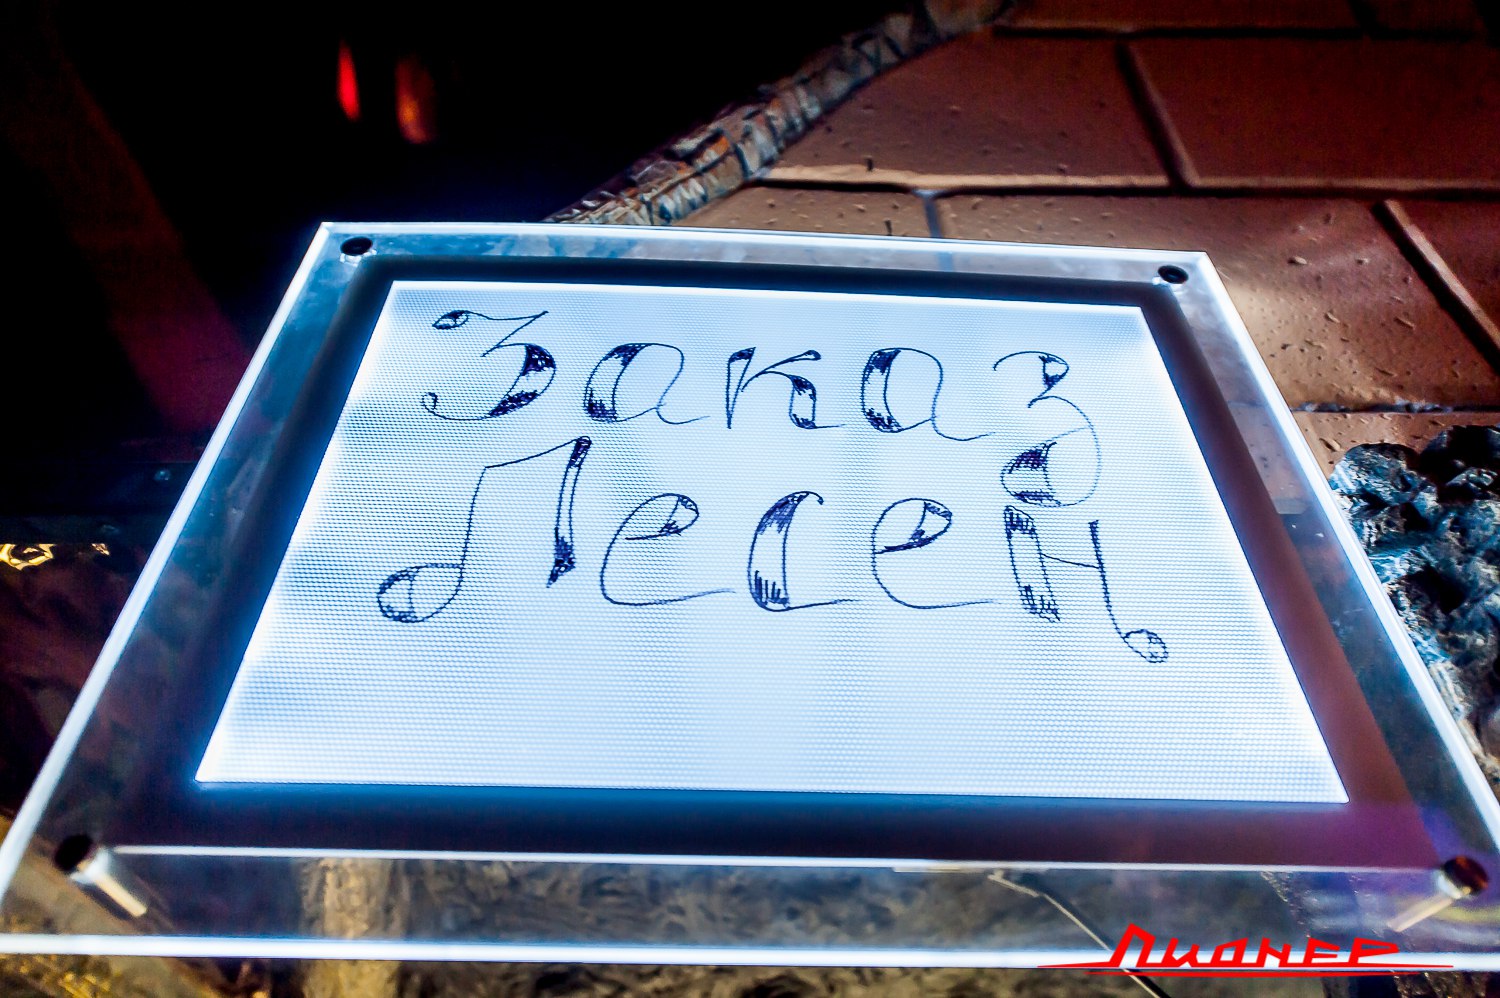 Заказ
Песен
ПИОНЕР